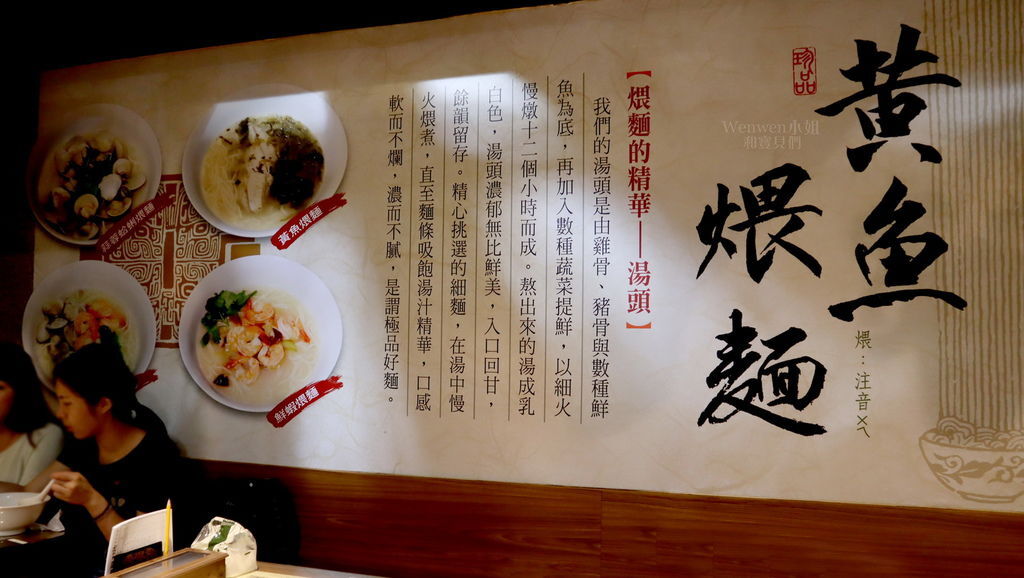 黃魚
煨麵
珍品
煨：注音ㄨㄟ
Wenwen小姐
和寶貝們
【煨麵的精華——湯頭】
我們的湯頭是由雞骨、豬骨與數種鮮
魚為底，再加入數種蔬菜提鮮，以細火
慢燉十二個小時而成。熬出來的湯成乳
白色，湯頭濃郁無比鮮美，入口回甘，
餘韻留存。精心挑選的細麵，在湯中慢
火煨煮，直至麵條吸飽湯汁精華，口感
軟而不爛，濃而不膩，是謂極品好麵。
黃魚煨麵
蒜蓉蛤蜊煨麵
鮮蝦煨麵